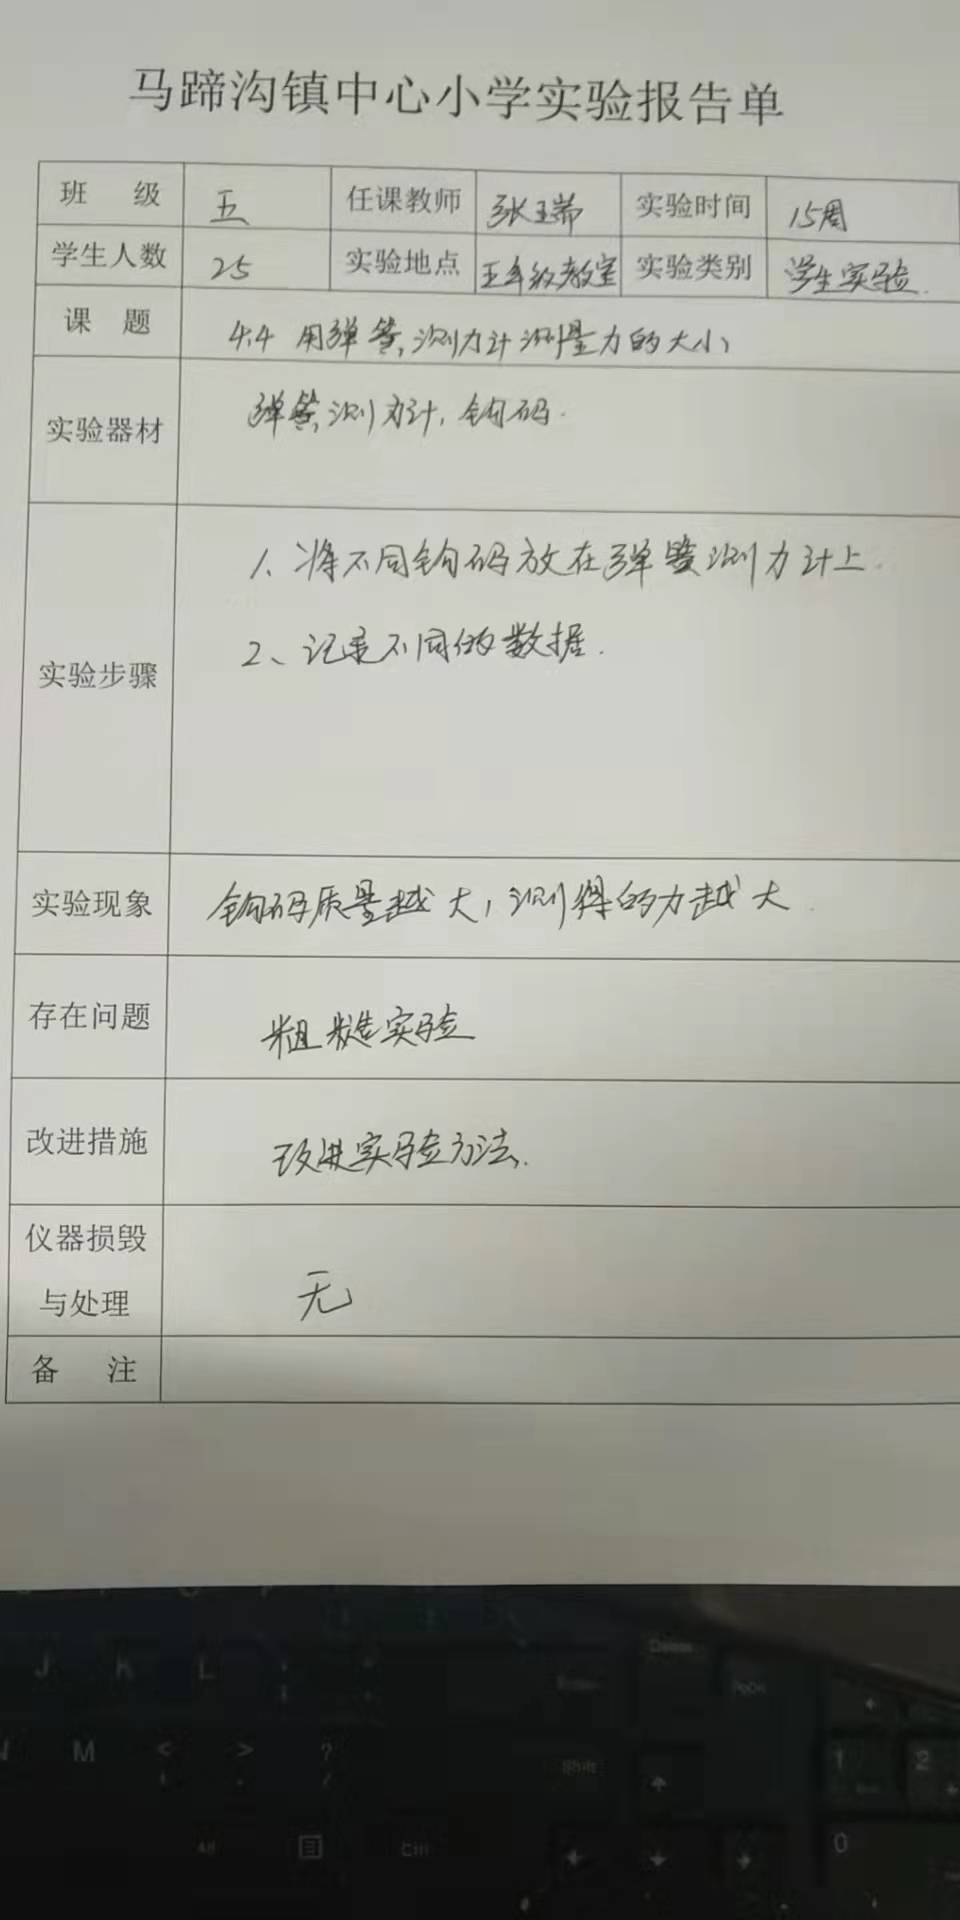 马蹄沟镇中心小学实验报告单
班 级 五 任课教师 张玉瑞 实验时间 15周
学生人数 25 实验地点 五年级教室 实验类别 学生实验.
课 题 4.4 用弹簧测力计测量力的大小
实验器材 弹簧测力计, 钩码.
实验步骤 1、将不同钩码放在弹簧测力计上.
2、记录不同的数据.
实验现象 钩码质量越大,测得的力越大.
存在问题 粗糙实验
改进措施 改进实验方法.
仪器损毁
与处理 无
备 注
J K L
Delete
Enter PgDn
M < > ?
/
Shift 1 2
Alt Ctrl 0